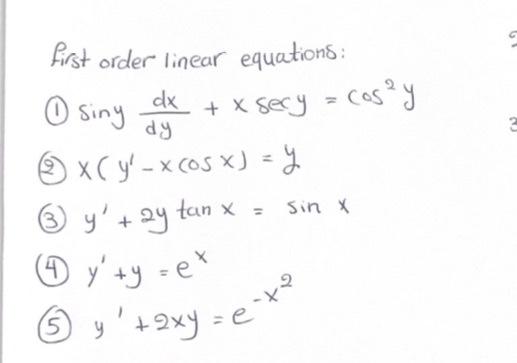 first order linear equations:
① siny dx/dy + x secy = cos²y
② x(y' - x cos x) = y
③ y' + 2y tan x = sin x
④ y' + y = eˣ
⑤ y' + 2xy = e^-x²